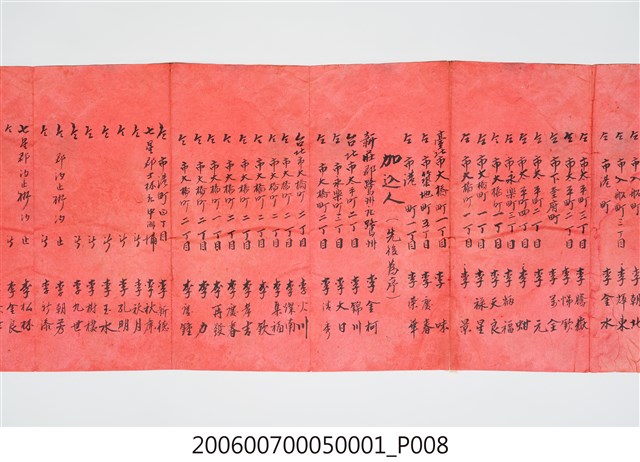 船町 李朝北
仝 市入船町三丁目 李錦水
仝 市港町 李金水
仝 市太平町二丁目 李
仝 市太平町二丁目 李錦欽
仝 市大橋町一丁目 李元
仝 市下奎府町 李萬金
仝 市太平町 李
仝 市永樂町 李炳福
仝 市大橋町一丁目 李天良
仝 市大橋町一丁目 李祿星
仝 市大橋町一丁目 李景
臺北市大橋町一丁目 李味
仝 市築地町五丁目 李慶春
仝 市港町 李榮華
加込人(先後為序)
新莊郡鷺州庄鷺州 李金柯
台北市太平町二丁目 李錦川
仝 市永樂町三丁目 李大目
仝 市大橋町二丁目 李清
台北市大橋町二丁目 李火川
仝 市大橋町二丁目 李燦南
仝 市大橋町二丁目 李集福
仝 市大橋町二丁目 李欽
仝 市大橋町二丁目 李韋吉
仝 市大橋町二丁目 李慶春
仝 市大橋町二丁目 李再發
仝 市大橋町二丁目 李力
仝 市大橋町二丁目 李慶鐘
仝 市港町四丁目 李新
七星郡士林庄中洲埔 李秋
仝 所 李秋月
仝 所 李孔明
仝 所 李玉水
仝 所 李樹樓
仝 所 李九世
仝 郡汐止街汐止 李朝芳
仝 所 李新添
七星郡汐止街汐止 李松林
仝 所 李金良
200600700050001_P008